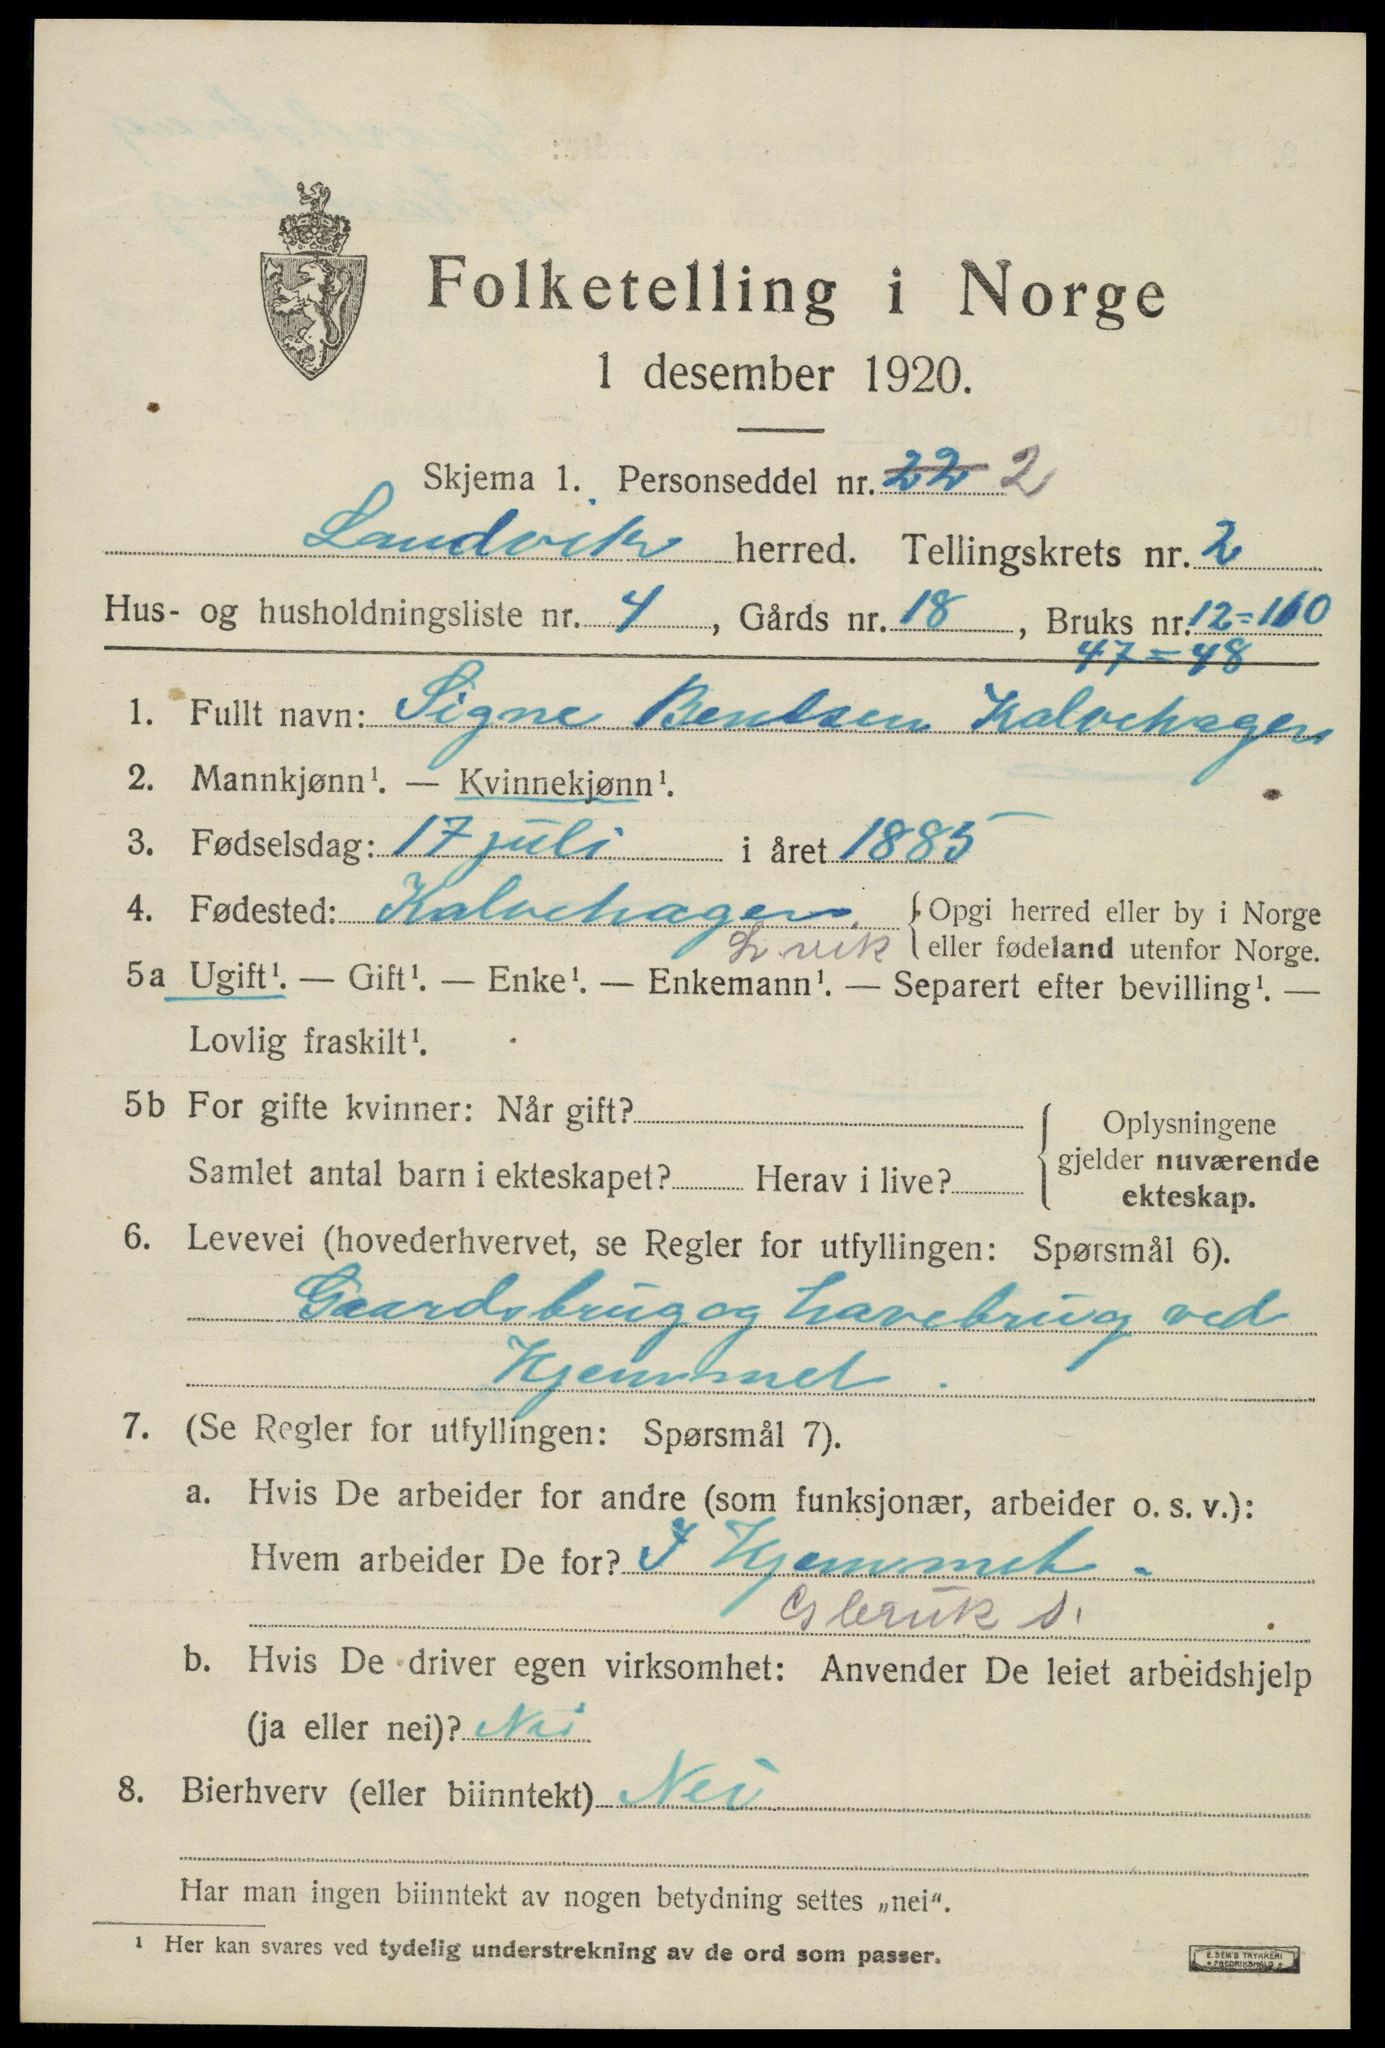 Folketelling i Norge
1 desember 1920.
Skjema 1. Personseddel nr. 22 2
Landvik herred. Tellingskrets nr. 2
Hus- og husholdningsliste nr. 4, Gårds nr. 18, Bruks nr. 12=110
47=48
1. Fullt navn: Signe Bentsen Kalvehagen
2. Mannkjønn¹. — Kvinnekjønn¹.
3. Fødselsdag: 17 juli i året 1885
4. Fødested: Kalvehagen. { Opgi herred eller by i Norge
L.vik eller fødeland utenfor Norge.
5a Ugift¹. — Gift¹. — Enke¹. — Enkemann¹. — Separert efter bevilling¹. —
Lovlig fraskilt¹.
5b For gifte kvinner: Når gift?
Samlet antal barn i ekteskapet? Herav i live?
Oplysningene
gjelder nuværende
ekteskap.
6. Levevei (hovederhvervet, se Regler for utfyllingen: Spørsmål 6).
Gaardsbrug og havebrug ved
Hjemmet.
7. (Se Regler for utfyllingen: Spørsmål 7).
a. Hvis De arbeider for andre (som funksjonær, arbeider o. s. v.):
Hvem arbeider De for? I Hjemmet -
Gbruk d.
b. Hvis De driver egen virksomhet: Anvender De leiet arbeidshjelp
(ja eller nei)? Nei
8. Bierhverv (eller biinntekt) Nei
Har man ingen biinntekt av nogen betydning settes „nei“.
¹ Her kan svares ved tydelig understrekning av de ord som passer.
E. SEM'S TRYKKERI
FREDRIKSHALD